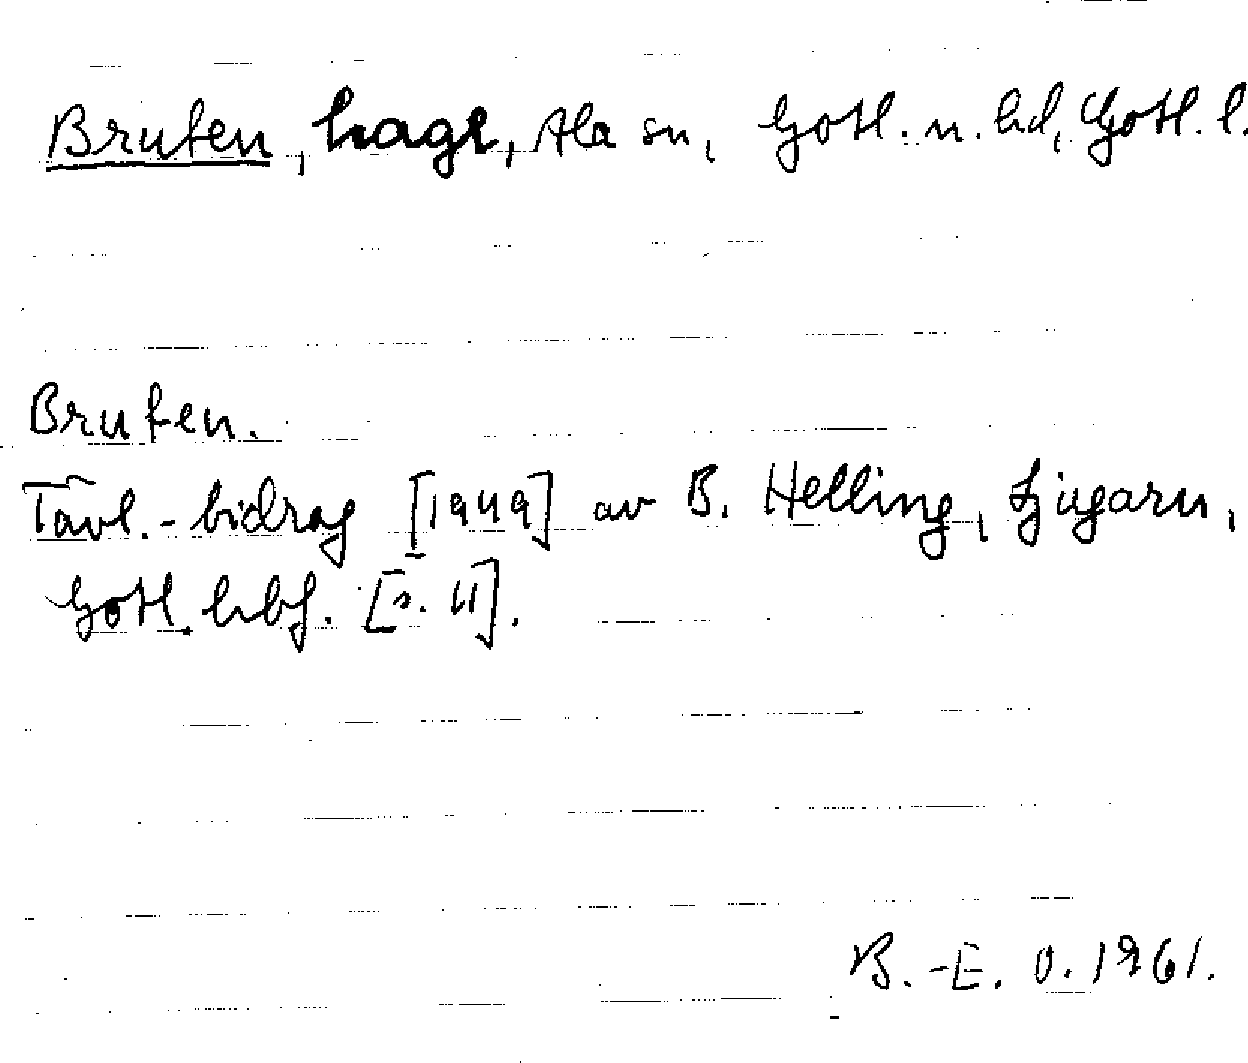 Bruten, hage, Ala sn, Gotl. n. hd, Gotl. l.
Bruten.
Tävl.-bidrag [1949] av B. Helling, Ljugarn,
Gotl. hbf. [s. 11].
B.-E. O. 1961.